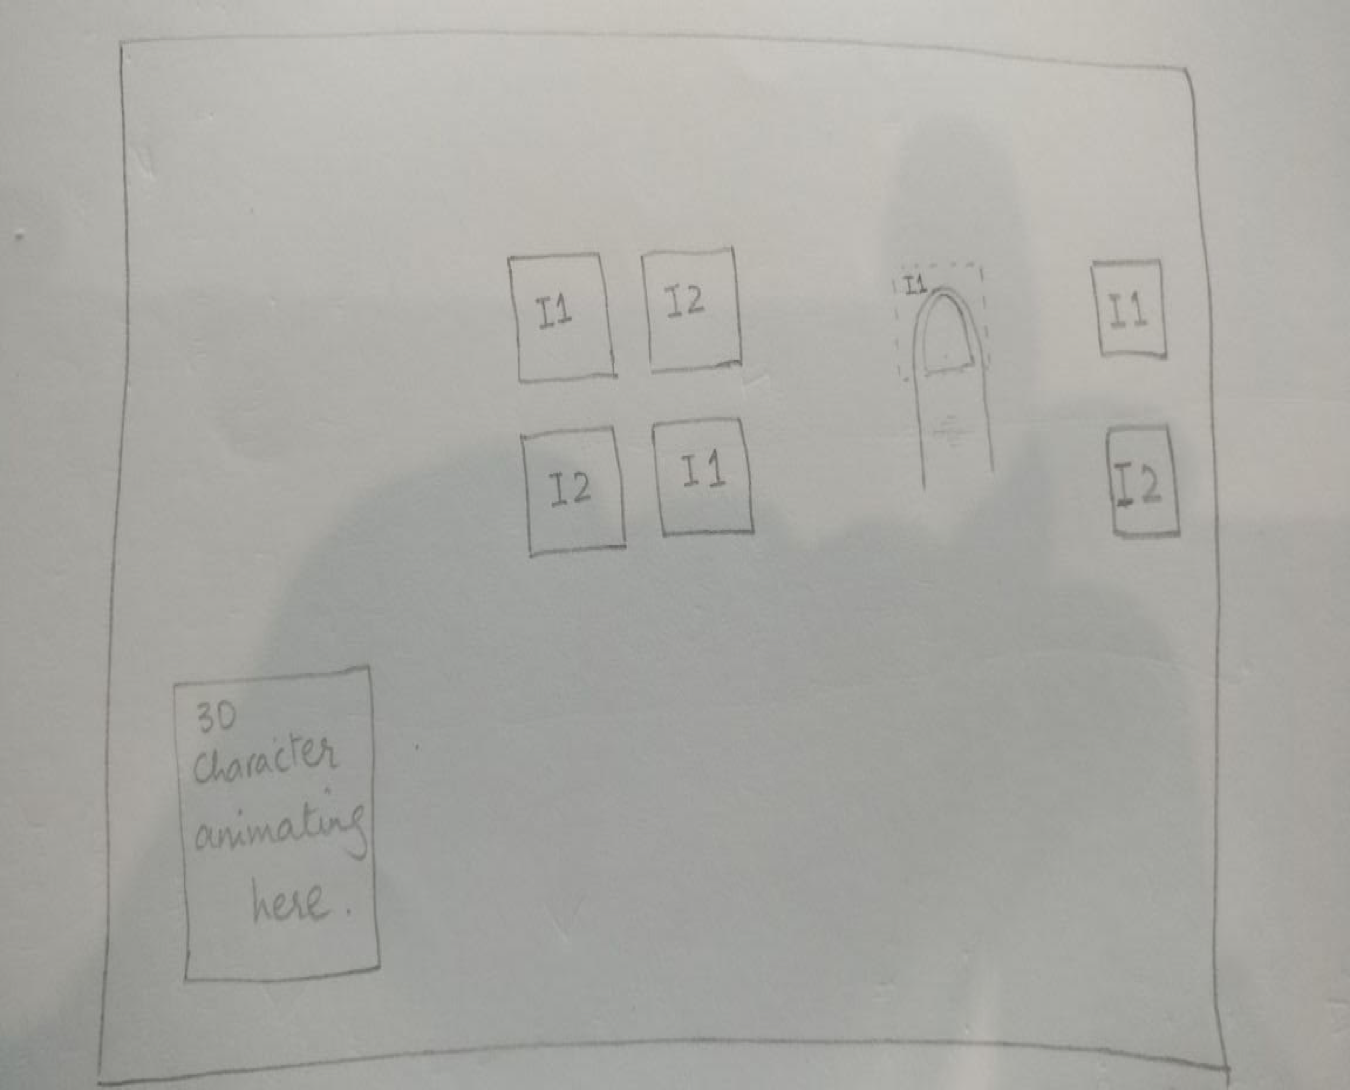 I1 I2
I1
I1
I2 I1
I2
3D
Character
animating
here.